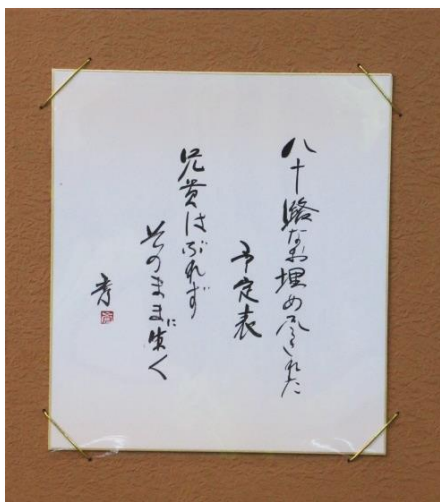 八十路なお埋め尽くされた
予定表
兄貴はぶれず
そのままに生く